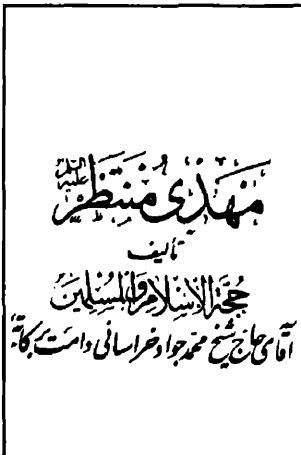 مَهْدِی مُنْتَظَر عَلَیْهِ السَّلام
تألیف
حُجَّةُ الْاِسْلامِ وَالْمُسْلِمینَ
آقای حاج شیخ محمّد جواد خراسانی دامت برکاته